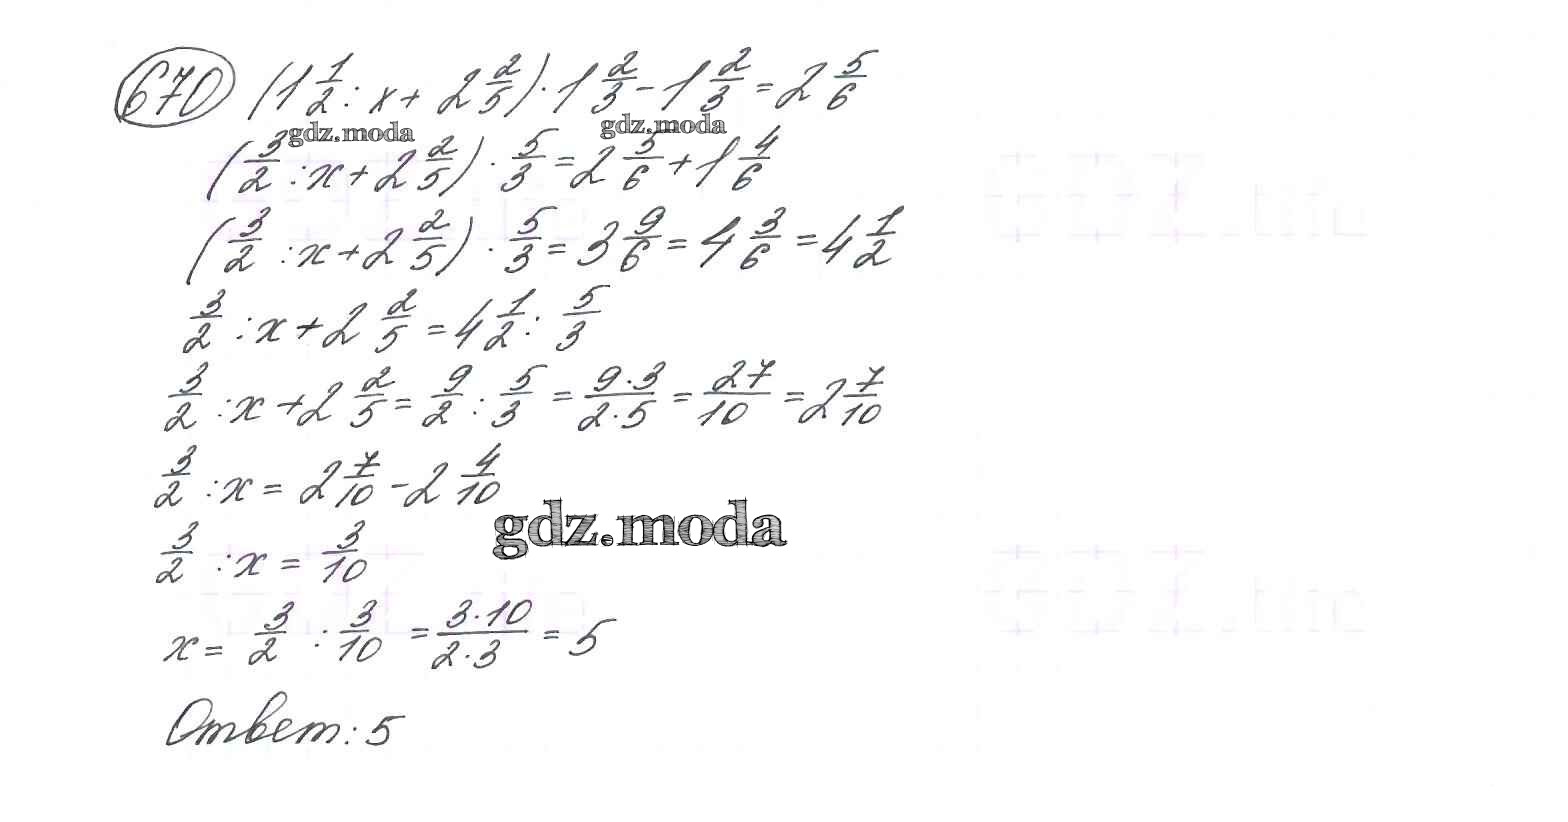 670 (1 1/2 : x + 2 2/5) · 1 2/3 - 1 2/3 = 2 5/6
gdz.moda gdz.moda
(3/2 : x + 2 2/5) · 5/3 = 2 5/6 + 1 4/6
(3/2 : x + 2 2/5) · 5/3 = 3 9/6 = 4 3/6 = 4 1/2
3/2 : x + 2 2/5 = 4 1/2 : 5/3
3/2 : x + 2 2/5 = 9/2 : 5/3 = 9·3/2·5 = 27/10 = 2 7/10
3/2 : x = 2 7/10 - 2 4/10
gdz.moda
3/2 : x = 3/10
x = 3/2 : 3/10 = 3·10/2·3 = 5
Ответ: 5